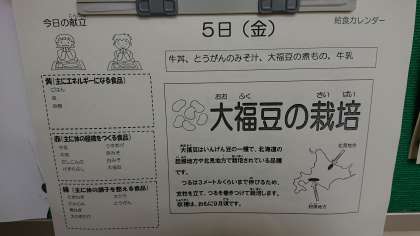 今日の献立
5日（金）
給食カレンダー
牛丼、とうがんのみそ汁、大福豆の煮もの、牛乳
黄（主にエネルギーになる食品）
ごはん
赤（主に体の組織をつくる食品）
緑（主に体の調子を整える食品）
おお ふく さい ばい
大福豆の栽培
大福豆はいんげん豆の一種で、北海道の
胆振地方や北見地方で栽培されている品種
です。
つるは3メートルくらいまで伸びるため、
支柱を立て、つるを巻きつけて栽培します。
収穫は、おもに9月頃です。
北見地方
胆振地方